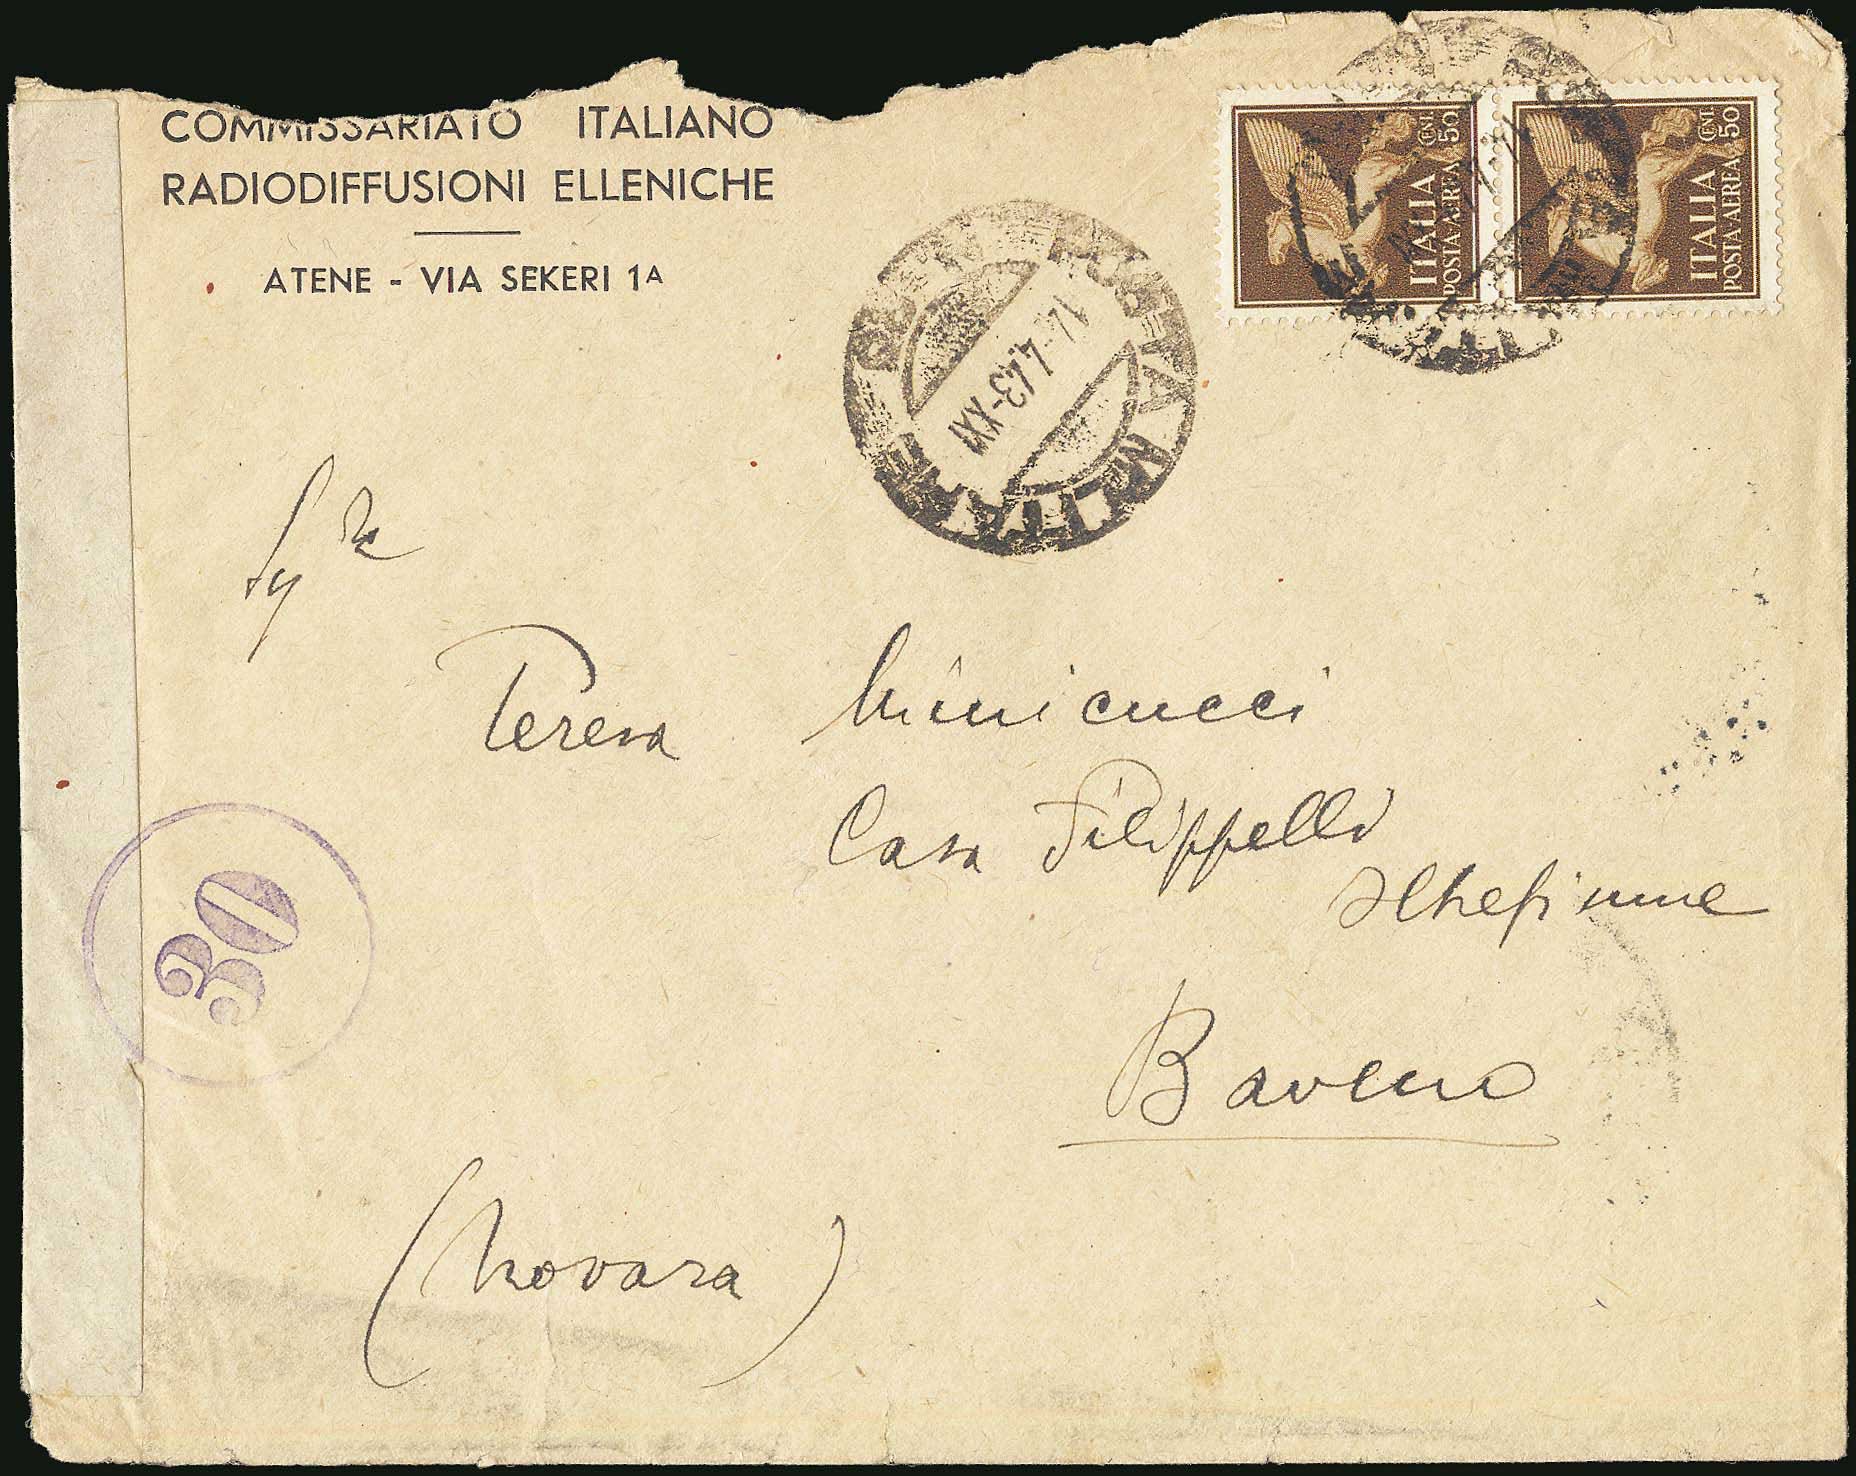 COMMISSARIATO ITALIANO
RADIODIFFUSIONI ELLENICHE
ATENE - VIA SEKERI 1A
ITALIA
POSTA AEREA
CENT. 50
ITALIA
POSTA AEREA
CENT. 50
POSTA MILITARE
17.4.43-XXI
Teresa Minicucci
Casa Filippelli
Baveno
(Novara)
30